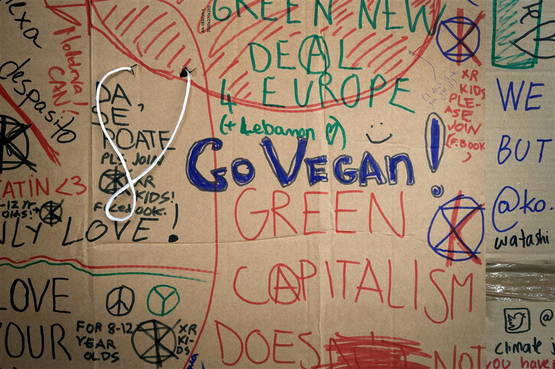 GREEN NEW
DEAL
4 EUROPE
(+ Lebanon)
Go VEGAN!
GREEN
CAPITALISM
DOES
NOT
XR
KIDS
PLE-
ASE
JOIN
(F.BOOK)
despasito
CAN!
DA,
SE
POATE
PLS JOIN
XR
KIDS!
Facebook.
LATIN <3
ONLY LOVE!
LOVE
YOUR
FOR 8-12
YEAR
OLDS
XR
KI-
DS
WE
BUT
@ko.
watashi
@
climate j
you have